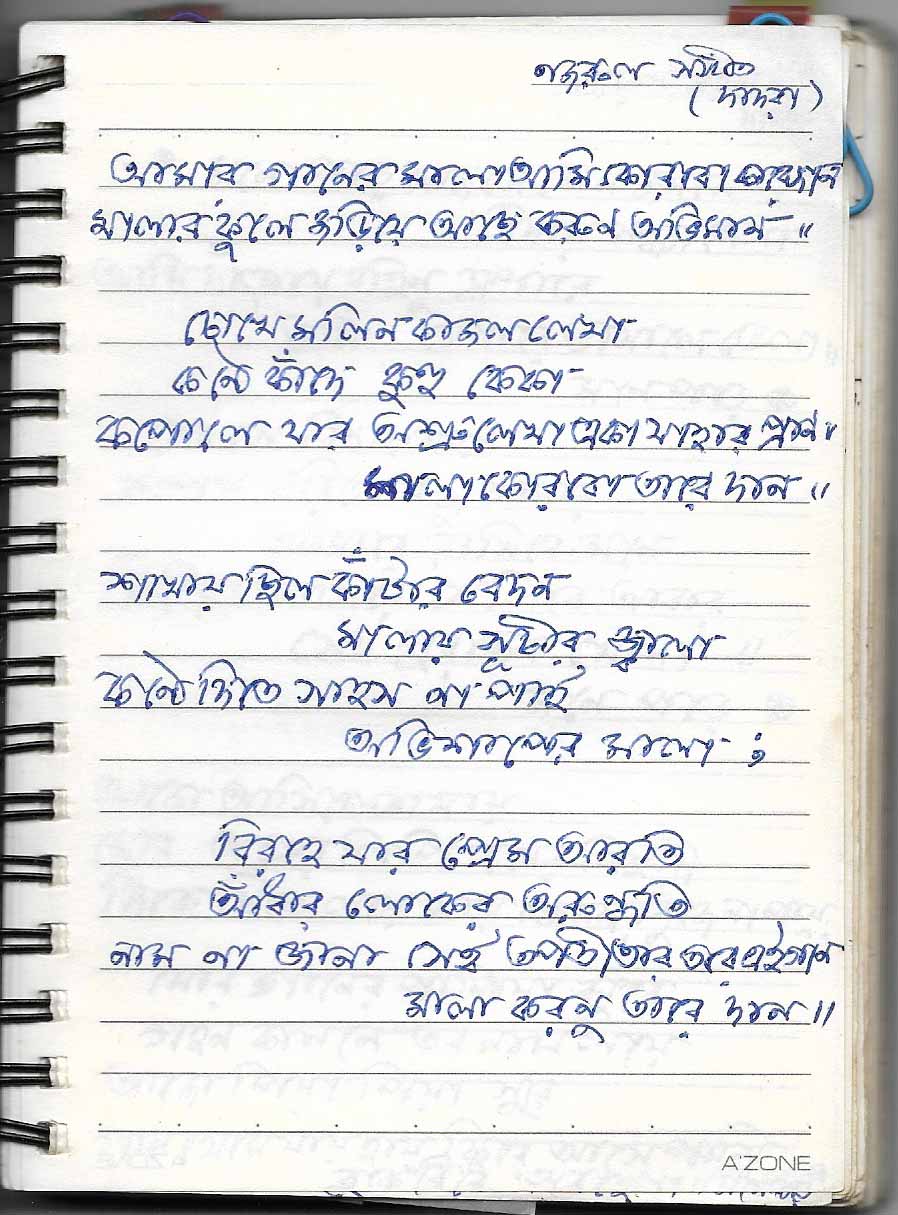 নজরুল সঙ্গীত
(দাদরা)
আমার গানের মালা আমি কোরবো কারে দান
মালার ফুলে জড়িয়ে আছে করুণ অভিমান ॥
চোখে মলিন কাজল লেখা
কন্ঠে কাঁদে কুহু কেকা
কপোলে যার অশ্রু লেখা একা যাহার প্রাণ ॥
মালা কোরবো তারে দান ॥
শাখায় ছিল কাঁটার বেদন
মালায় সূচীর জ্বালা
কন্ঠে দিতে সাহস না পাই
অভিশাপের মালা ;
বিরহে যার প্রেম আরতি
আঁধার লোকের অরুন্ধতি
নাম না জানা সেই তপতী তার তরে এই গান
মালা করবু তারে দান ॥
A'ZONE